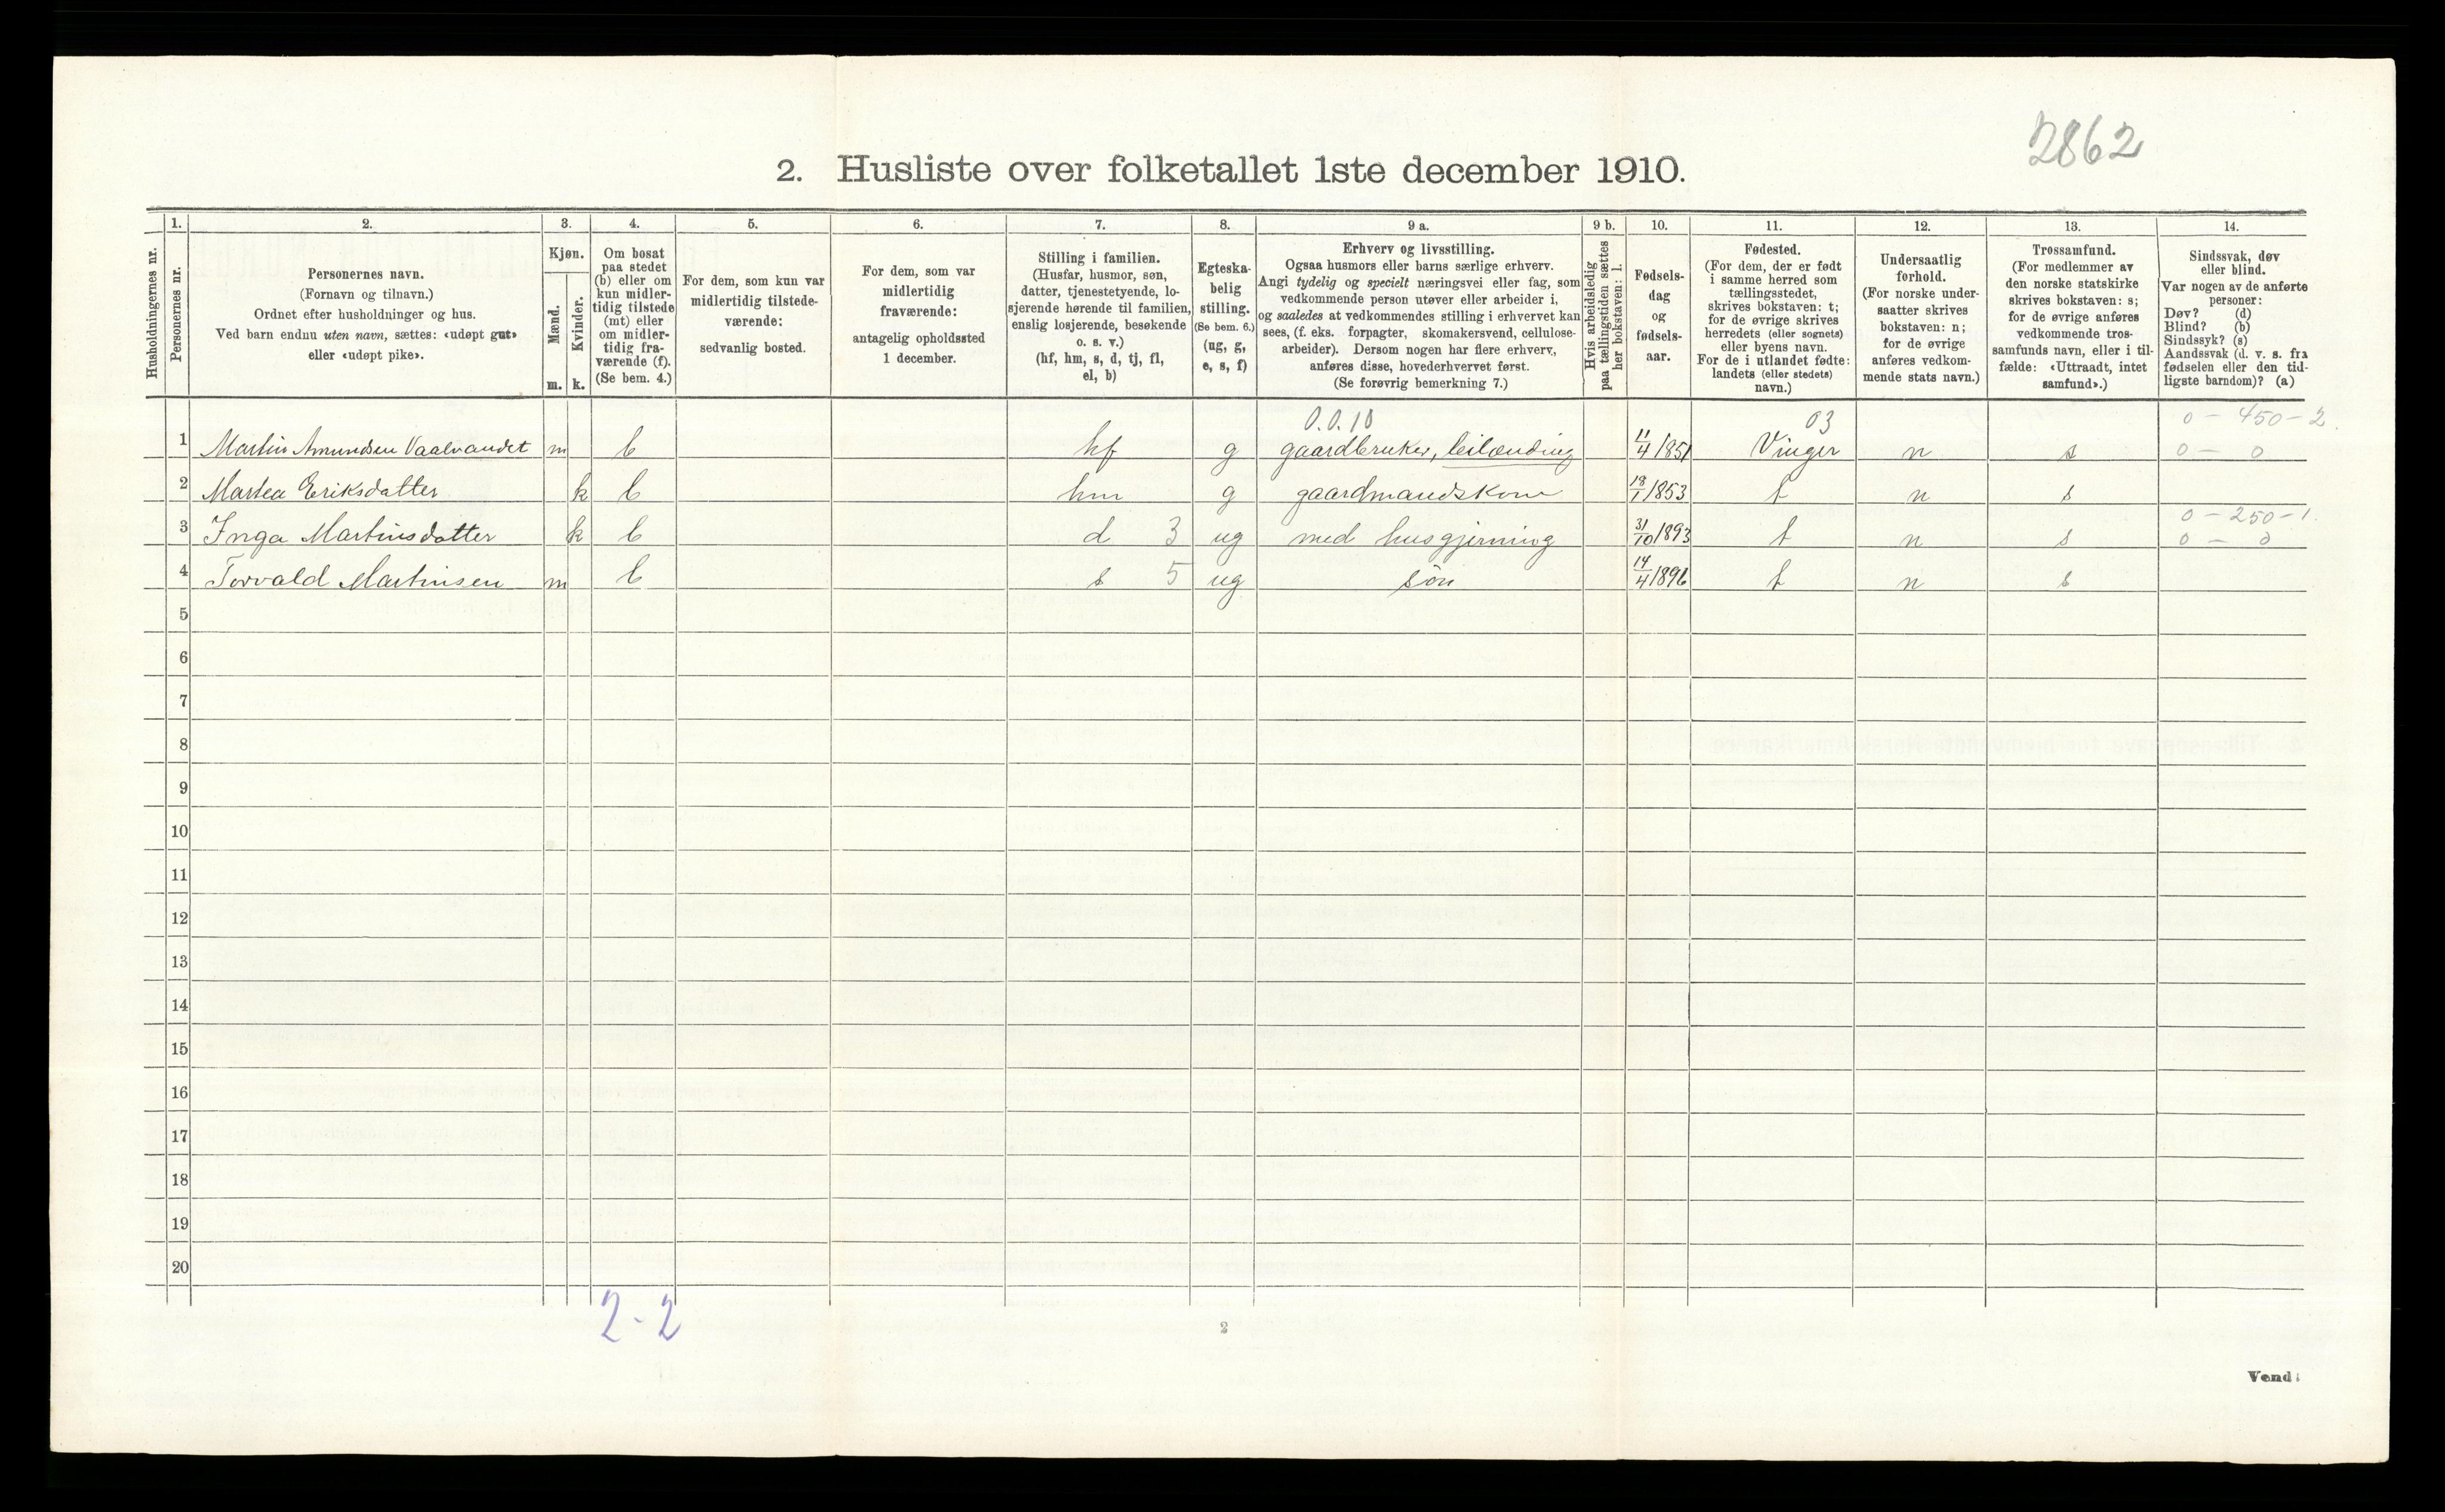 2862
2. Husliste over folketallet 1ste december 1910.
Husholdningernes nr.
1. Personernes nr.
2. Personernes navn. (Fornavn og tilnavn.) Ordnet efter husholdninger og hus. Ved barn endnu uten navn, sættes: «udøpt gut» eller «udøpt pike».
3. Kjøn. Mænd. m. Kvinder. k.
4. Om bosat paa stedet (b) eller om kun midlertidig tilstede (mt) eller om midlertidig fraværende (f). (Se bem. 4.)
5. For dem, som kun var midlertidig tilstedeværende: sedvanlig bosted.
6. For dem, som var midlertidig fraværende: antagelig opholdssted 1 december.
7. Stilling i familien. (Husfar, husmor, søn, datter, tjenestetyende, losjerende hørende til familien, enslig losjerende, besøkende o. s. v.) (hf, hm, s, d, tj, fl, el, b)
8. Egteskabelig stilling. (Se bem. 6.) (ug, g, e, s, f)
9 a. Erhverv og livsstilling. Ogsaa husmors eller barns særlige erhverv. Angi tydelig og specielt næringsvei eller fag, som vedkommende person utøver eller arbeider i, og saaledes at vedkommendes stilling i erhvervet kan sees, (f. eks. forpagter, skomakersvend, cellulosearbeider). Dersom nogen har flere erhverv, anføres disse, hovederhvervet først. (Se forøvrig bemerkning 7.)
9 b. Hvis arbeidsledig paa tællingstiden sættes her bokstaven: l.
10. Fødselsdag og fødselsaar.
11. Fødested. (For dem, der er født i samme herred som tællingsstedet, skrives bokstaven: t; for de øvrige skrives herredets (eller sognets) eller byens navn. For de i utlandet fødte: landets (eller stedets) navn.)
12. Undersaatlig forhold. (For norske undersaatter skrives bokstaven: n; for de øvrige anføres vedkommende stats navn.)
13. Trossamfund. (For medlemmer av den norske statskirke skrives bokstaven: s; for de øvrige anføres vedkommende trossamfunds navn, eller i tilfælde: «Uttraadt, intet samfund».)
14. Sindssvak, døv eller blind. Var nogen av de anførte personer: Døv? (d) Blind? (b) Sindssyk? (s) Aandssvak (d. v. s. fra fødselen eller den tidligste barndom)? (a)
0.0.10 03 0 - 450 - 2.
1 Martin Amundsen Vaalvandet m b hf g gaardbruker, leilænding 11/4 1851 Vinger n s 0 - 0
2 Martea Eriksdatter k b hm g gaardmandskone 18/1 1853 t n s
0 - 250 - 1.
3 Inga Martinsdatter k b d 3 ug med husgjerning 31/10 1893 t n s 0 - 0
4 Torvald Martinsen m b s 5 ug søn 14/4 1896 t n s
5
6
7
8
9
10
11
12
13
14
15
16
17
18
19
20
2 - 2
2
Vend!